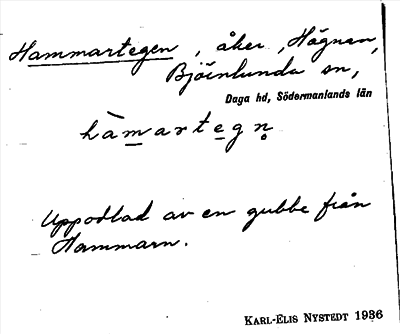 Hammartegen, åker, Högnan,
Björnlunda sn,
Daga hd, Södermanlands län
hàmartegn̥
Uppodlad av en gubbe från
Hammarn.
KARL-ELIS NYSTEDT 1936